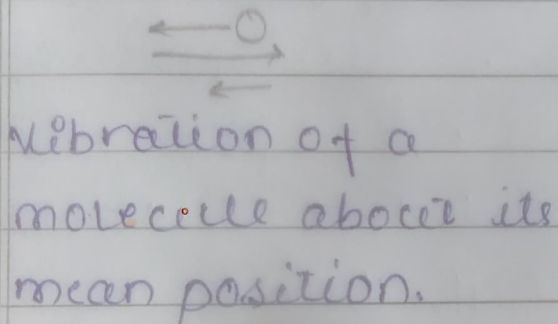 Vibration of a
molecule about its
mean position.